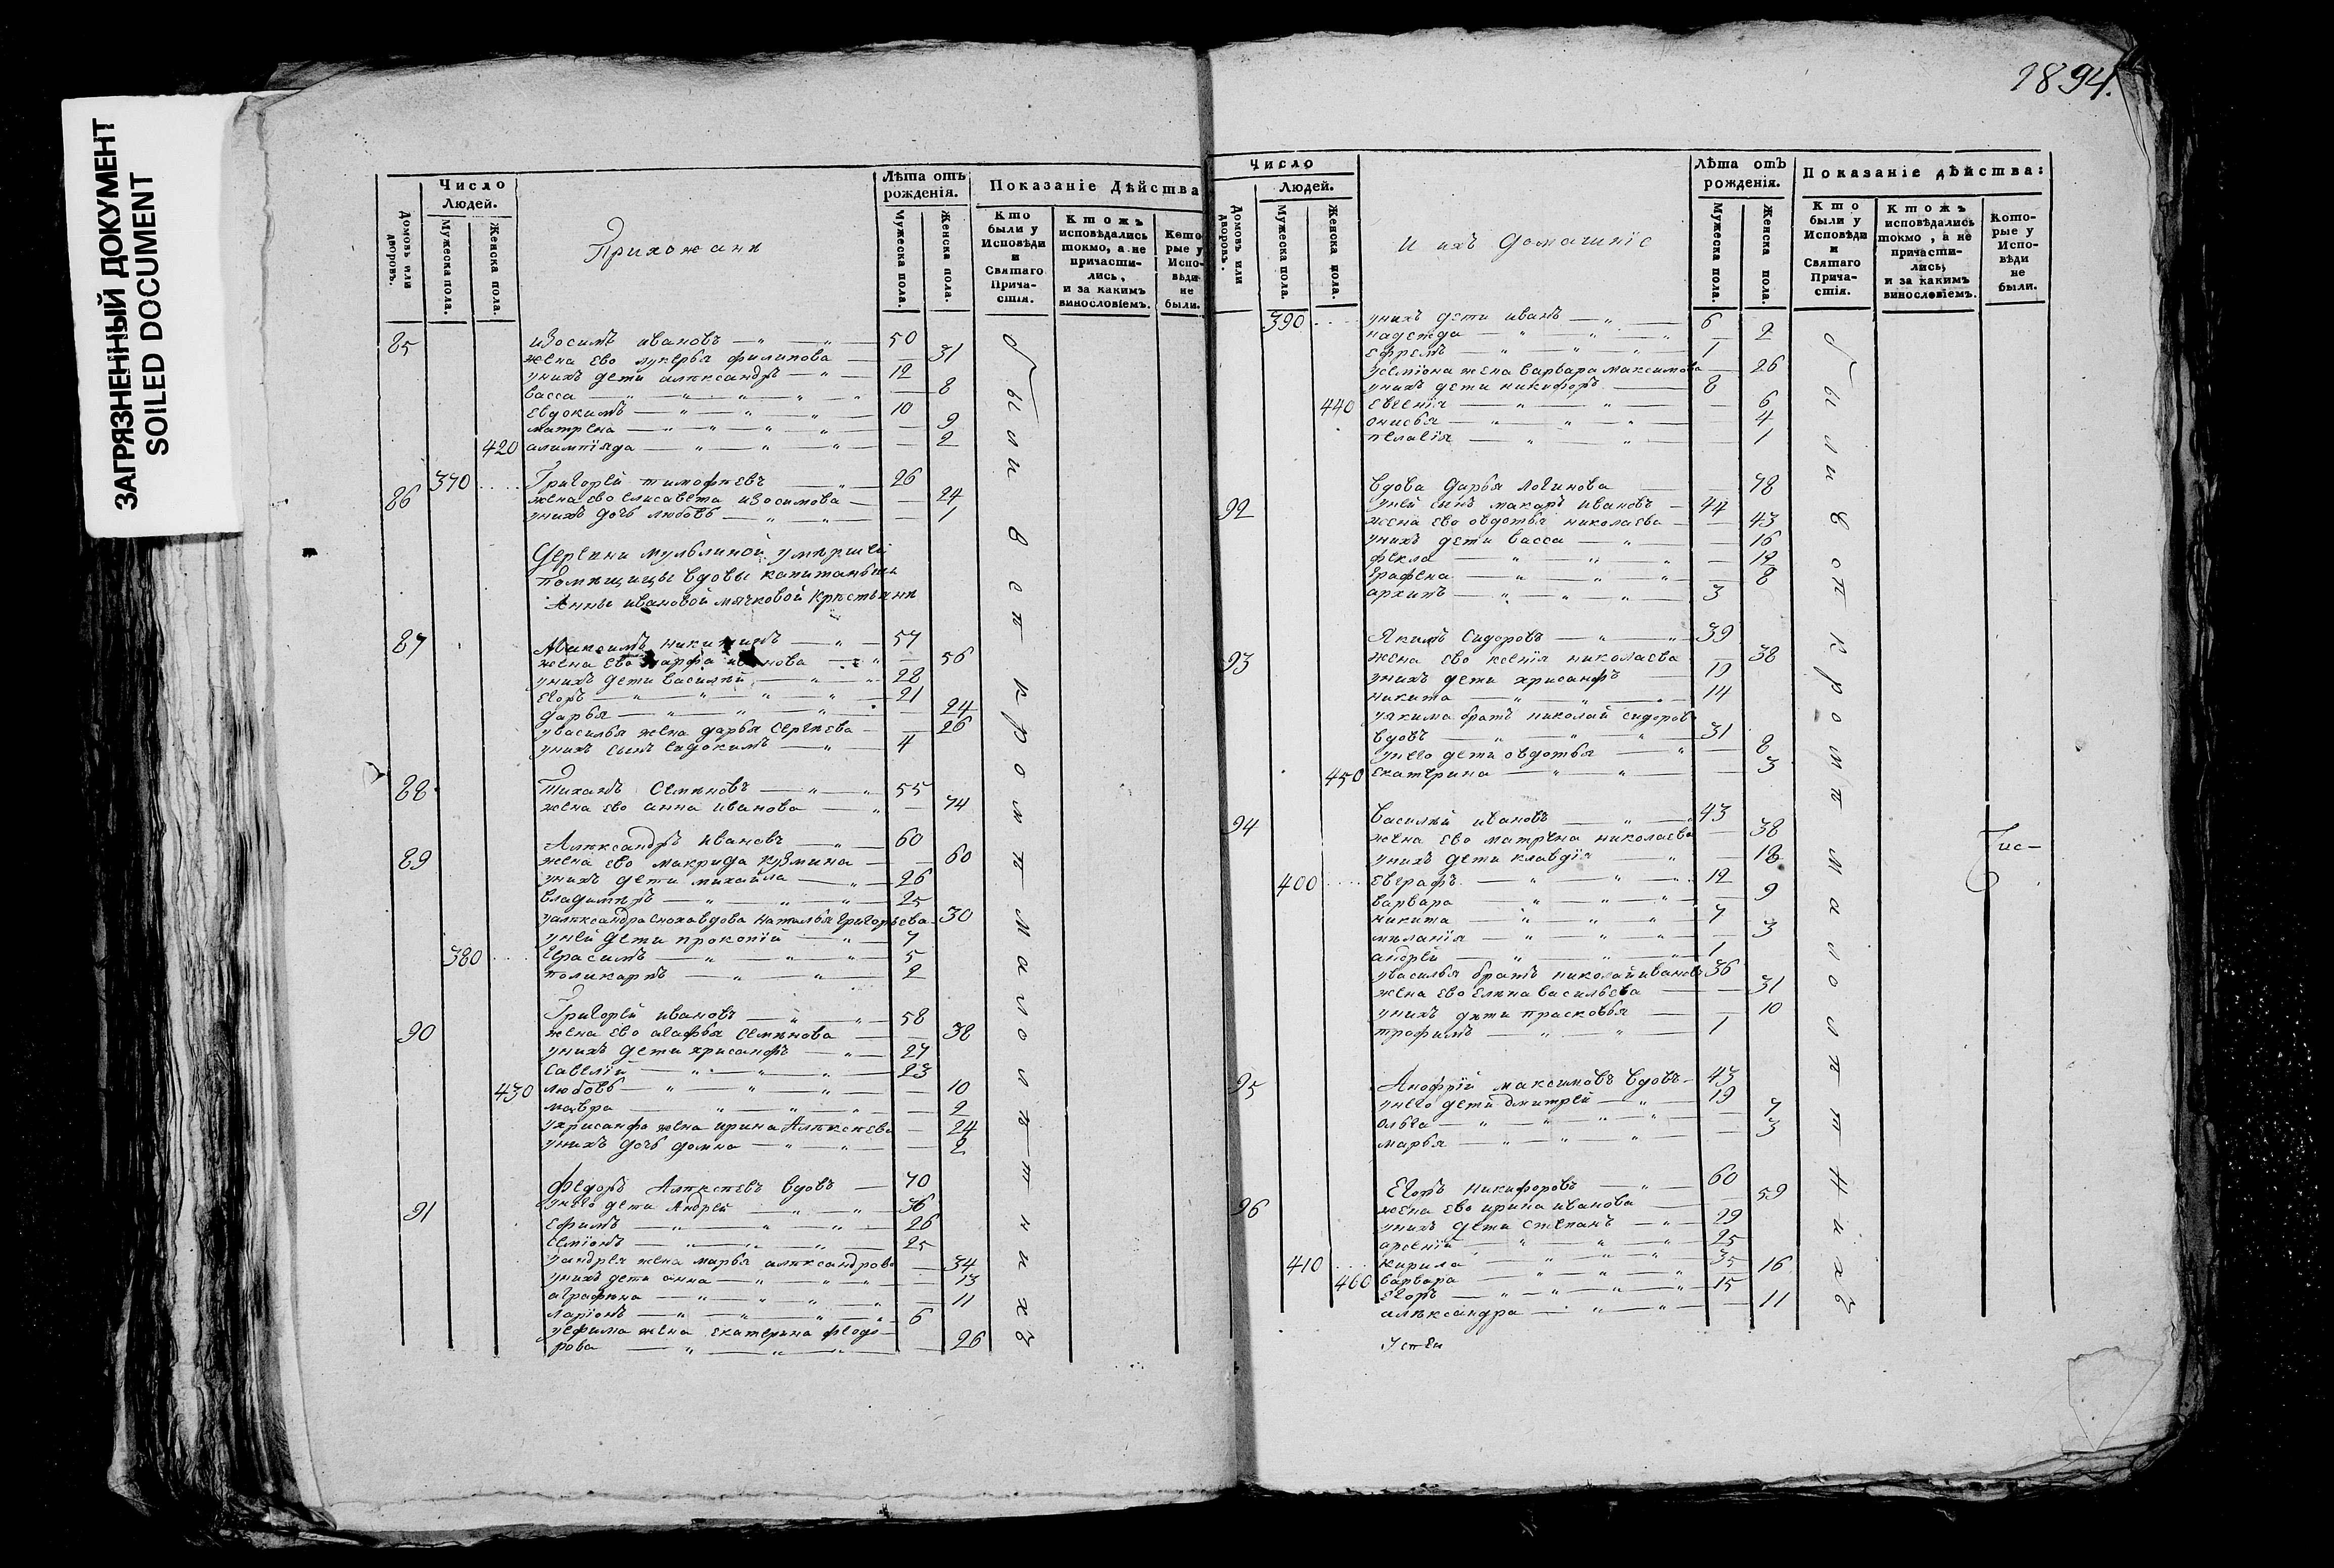 ЗАГРЯЗНЕННЫЙ ДОКУМЕНТ
SOILED DOCUMENT
Число
Людей.
Домовъ или дворовъ.
Мужеска пола.
Женска пола.
Прихожани
Лѣта отъ рожденія.
Мужеска пола.
Женска пола.
Показаніе Дѣйства
Кто были у Исповѣди и Святаго Прича-стія.
Ктожъ исповѣдались токмо, а не причасти-лись, и за какимъ винословіемъ.
Кото-рые у Испо-вѣди не были.
85 изосимъ ивановъ 50
жена ево лукерья филипова 31
унихъ дети алѣксандръ 12
васса 8
Евдокимъ 10
матрена 9
420 алимпіяда 2
86 370 Григорей тимофѣевъ 26
жена ево Елисавета изосимова 24
унихъ дочь любовь 1
Деревни мульлиной умѣршей
помѣщицы вдовы капитаньши
Анны ивановой мячковой крѣстьяни
87 Максимъ никитинъ 57
жена ево марфа ивановa 56
унихъ дети василѣй 28
Егоръ 21
дарья 24
увасилья жена дарья Сергѣева 26
унихъ сынъ Евдокимъ 4
88 Тихонъ Семѣновъ 55
жена ево анна иванова 74
89 Алѣксандръ ивановъ 60
жена ево макрида кузмина 60
унихъ дети михайла 26
владимѣръ 25
уалѣксандра сноха вдова наталья григорьева 30
уней дети прокопій 7
380 Герасимъ 5
поликарпъ 2
90 Григорей ивановъ 58
жена ево агафья Семѣнова 38
унихъ дети хрисанфъ 27
Савелій 23
430 любовь 10
мавра 2
ухрисанфа жена ирина Алѣксѣева 24
унихъ дочь домна 2
91 Федоръ Алѣксѣевъ вдовъ 70
унего дети Андрей 36
Ефимъ 26
Семіонъ 25
уандрея жена марья алѣксандрова 34
унихъ дети анна 13
аграфена 11
ларіонъ 6
уефима жена Екатерина федо-
рова 26
были в с п кромѣ малолѣтнихъ
1894.
Число
Людей.
Домовъ или дворовъ.
Мужеска пола.
Женска пола.
И ихъ домашніе
Лѣта отъ рожденія.
Мужеска пола.
Женска пола.
Показаніе дѣйства:
Кто были у Исповѣди и Святаго Прича-стія.
Ктожъ исповѣдались токмо, а не причасти-лись, и за какимъ винословіемъ.
Кото-рые у Испо-вѣди не были.
390 унихъ дети иванъ 6
надежда 2
Ефремъ 1
усеміона жена варвара максимова 26
унихъ дети никифоръ 8
440 Евгенія 6
онисья 4
пелагія 1
92 вдова дарья логинова 78
уней сынъ макаръ ивановъ 44
жена ево овдотья николаева 43
унихъ дети васса 16
фекла 12
Графена 8
архипъ 3
93 Якимъ Сидоровъ 39
жена ево ксенія николаева 38
унихъ дети хрисанфъ 19
никита 14
уякима братъ николай сидоровъ
вдовъ 31
унего дети овдотья 8
450 Екатерина 3
94 василѣй ивановъ 43
жена ево матрена николаева 38
унихъ дети клавдія 18
400 Евграфъ 12
варвара 9
никита 7
мѣланія 3
андрей 1
увасилья братъ николай ивановъ 36
жена ево Елѣна васильева 31
унихъ дѣти прасковья 10
трофимъ 1
95 Анофрій максимовъ вдовъ 43
унего дети дмитрей 19
ольга 7
марья 3
96 Егоръ никифоровъ 60
жена ево ирина иванова 59
унихъ дети Степанъ 29
арсеній 25
410 кирила 35
460 варвара 16
Егоръ 15
алѣксандра 11
были в с п кромѣ малолѣтнихъ